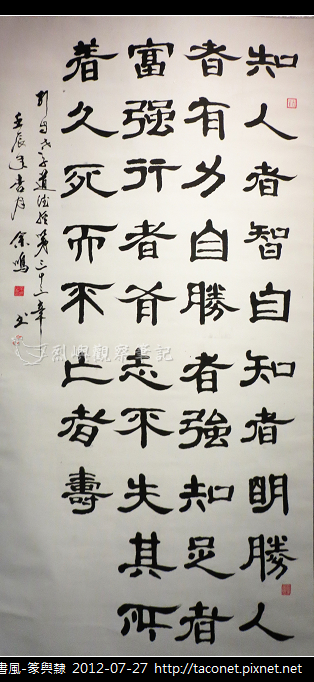 知人者智自知者明勝人
者有力自勝者強知足者
富强行者有志不失其所
着久死而不亡者壽
老子道德經第三十三章
壬辰 余鳴 书
烈嶼觀察筆記
書風-篆與隸 2012-07-27 http://taconet.pixnet.net